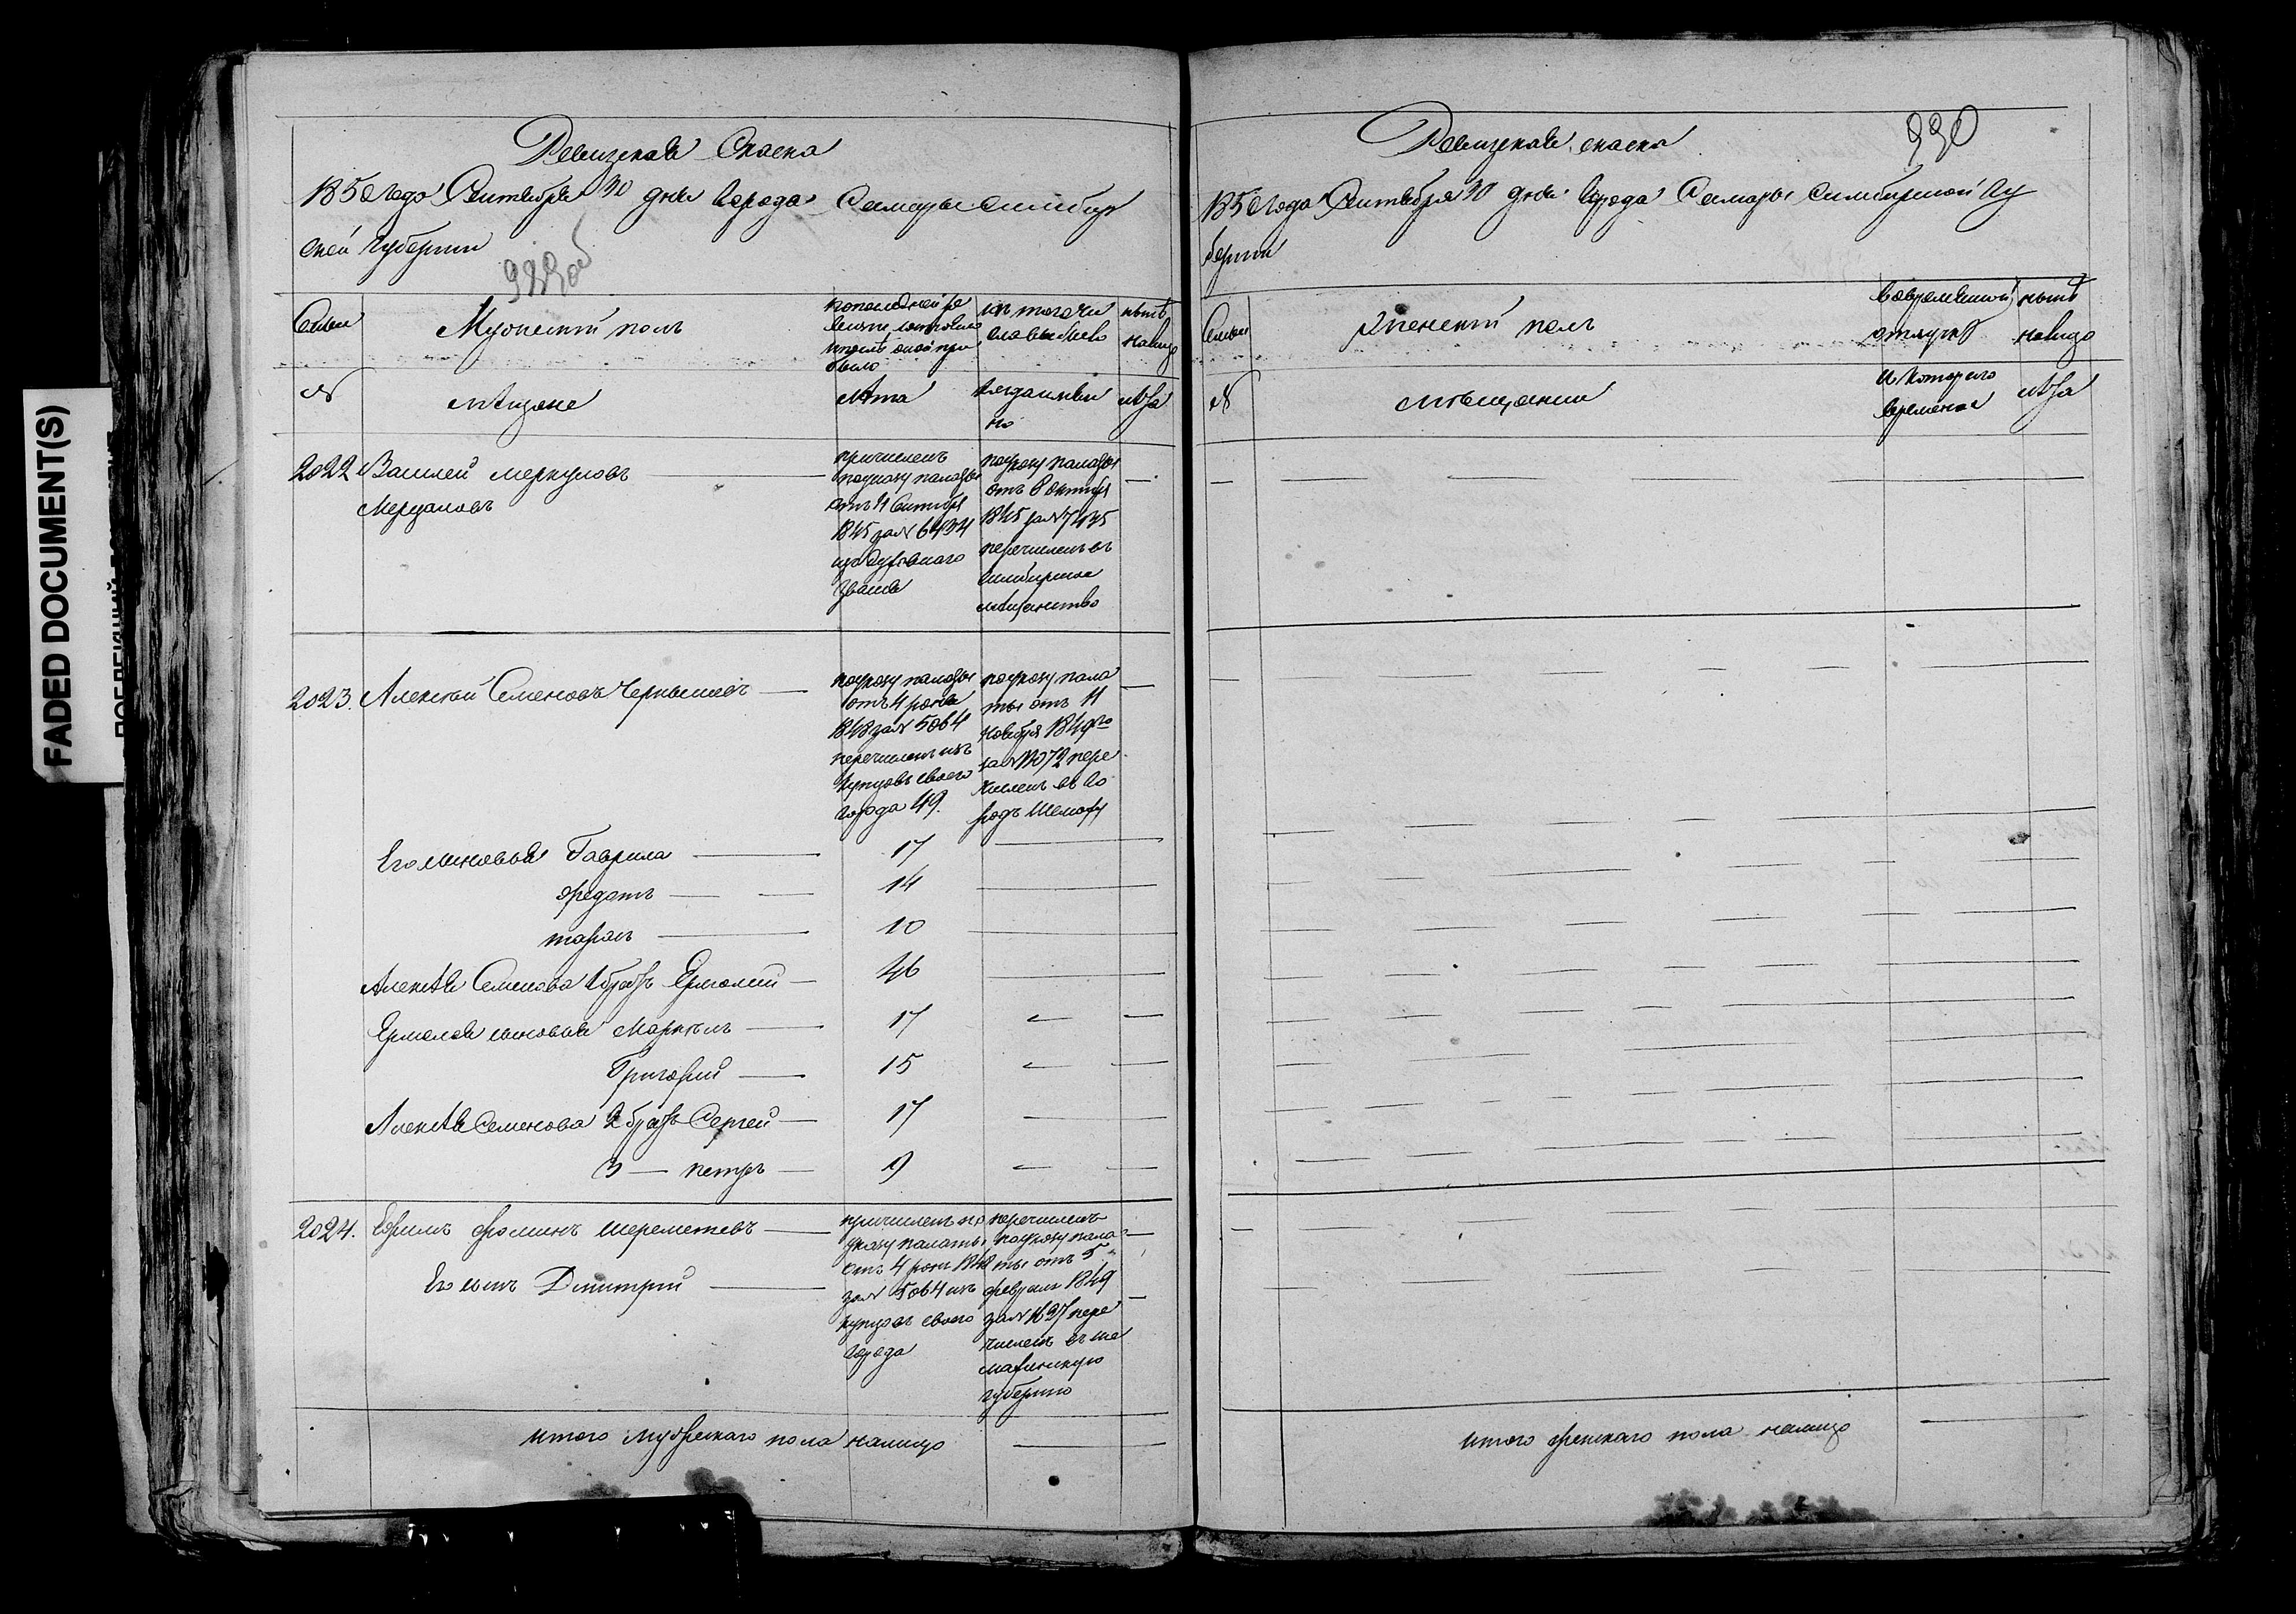 FADED DOCUMENT(S)
Ревизская Скаска
1850 года Сентября 30 дня Города Самары Симбир
ской Губернии
Семьи
Мужеский полъ
По последней ре
визии состояло
и после оной при
было
из того чи
сла выбыло
ныне
налицо
№
мещане
Лета
когда имян
но
Лета
2022
Василей Меркуловъ
причисленъ
по указу палаты
1845 за № 6434
звания
по указу палаты
отъ 8 октября
1845 за № 7435
перечисленъ въ
Симбирское
мещанство
2023.
Алексей Семеновъ Чернышевъ
по указу палаты
отъ 4 июня
1848 за № 5064
перечисленъ изъ
купцовъ своего
города 49.
по указу пала
ты отъ 11
ноября 1849го
за № 11072 пере
численъ въ го
родъ Шемаху
Его сыновья Гаврила
17
Федотъ
14
10
Алексея Семенова 1 братъ Ермолай
46
Ермолая сыновья Маркелъ
17
Григорий
15
Алексея Семенова 2 братъ Сергей
17
3 — Петръ
9
2024.
Ефимъ Фоминъ Шереметевъ
Его сынъ Дмитрий
причисленъ по
указу палаты
отъ 4 июня 1848
за № 5064 изъ
купцовъ своего
города
перечисленъ
по указу пала
ты отъ 5
февраля 1849
за № 1627 пере
численъ въ Ше
махинскую
губернию
итого мужескаго пола налицо
Ревизская скаска
330
1850 года Сентября 30 дня Города Самары Симбирской Гу
бернии
Семьи
Женский полъ
Во временной
отлучке
ныне
налицо
№
мещанки
с котораго
времени
Лета
итого женскаго пола налицо